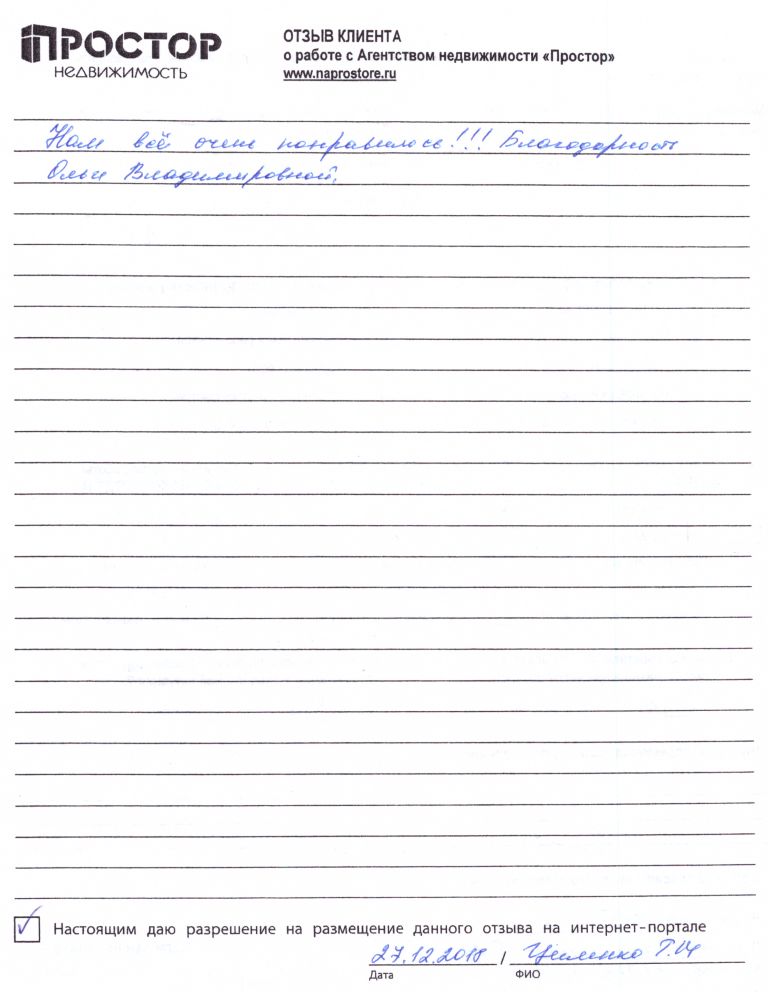 ПРОСТОР
НЕДВИЖИМОСТЬ
ОТЗЫВ КЛИЕНТА
о работе с Агентством недвижимости «Простор»
www.naprostore.ru
Нам всё очень понравилось!!! Благодарность
Ольге Владимировной.
Настоящим даю разрешение на размещение данного отзыва на интернет-портале
27.12.2018 /
Дата ФИО